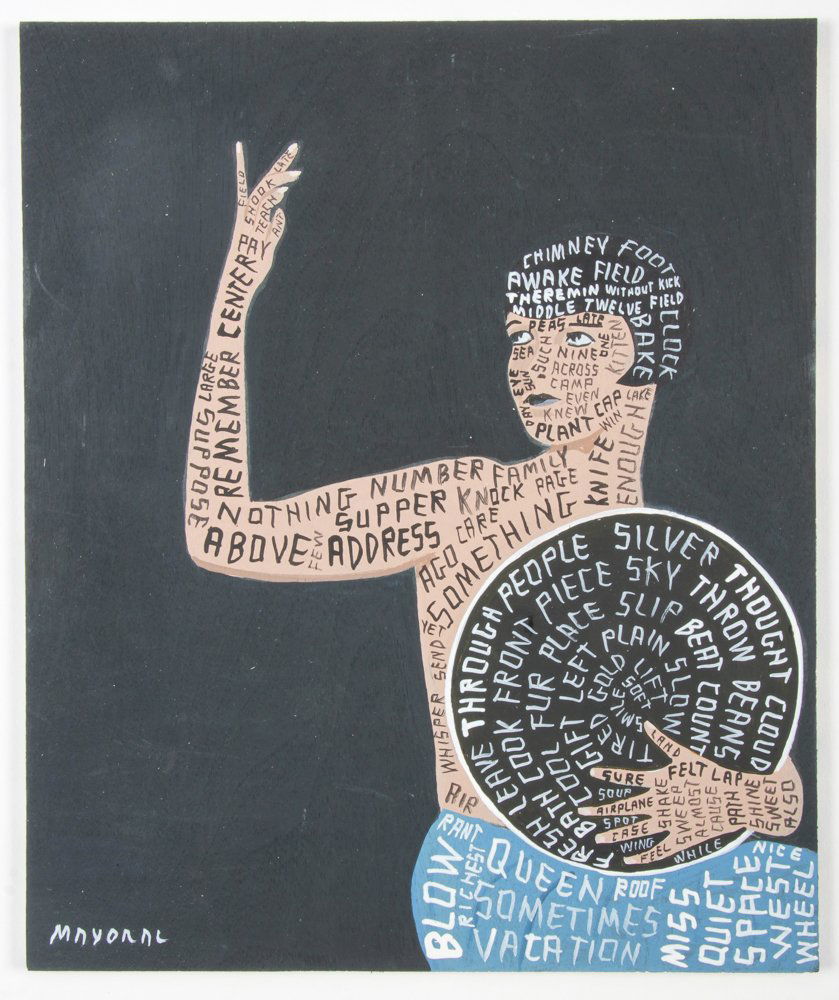 FIELD
SHOOK
LATE
TEACH
ANT
PAY
CENTER
REMEMBER
LARGE
SUPPOSE
CHIMNEY FOOT
AWAKE FIELD
THEREMIN WITHOUT KICK
MIDDLE TWELVE FIELD
CLOCK
BAKE
PEAS LATE
SEA
SUCH
NINE
ONE
KITTEN
ACROSS
EYE
GUN
CAMP
EVEN
DAY
KNEW
CAP
LAKE
PLANT
WIN
ENOUGH
KNIFE
NOTHING NUMBER FAMILY
SUPPER KNOCK PAGE
ABOVE FEW ADDRESS CARE
AGO
SOMETHING
YET
SEND
WHISPER
AIR
LEAVE THROUGH PEOPLE SILVER THOUGHT CLOUD
FRESH BATH COOK FRONT PIECE SKY THROW BEANS
COOL FUR PLACE SLIP BEAT COUNT
GIFT LEFT PLAIN SLOW
TIRED GOLD LIFT
SMILE SOFT
LAND
SURE FELT LAP
SOUP
AIRPLANE
SPOT
CASE
WING
FEEL
SHAKE
SWEEP
ALMOST
CAUSE
PATH
SHINE
SWEET
ALSO
WHILE
RANT
BLOW
RICHEST
QUEEN ROOF
SOMETIMES
VACATION
MISS
QUIET
SPACE
NICE
WEST
WHEEL
MAYORAL